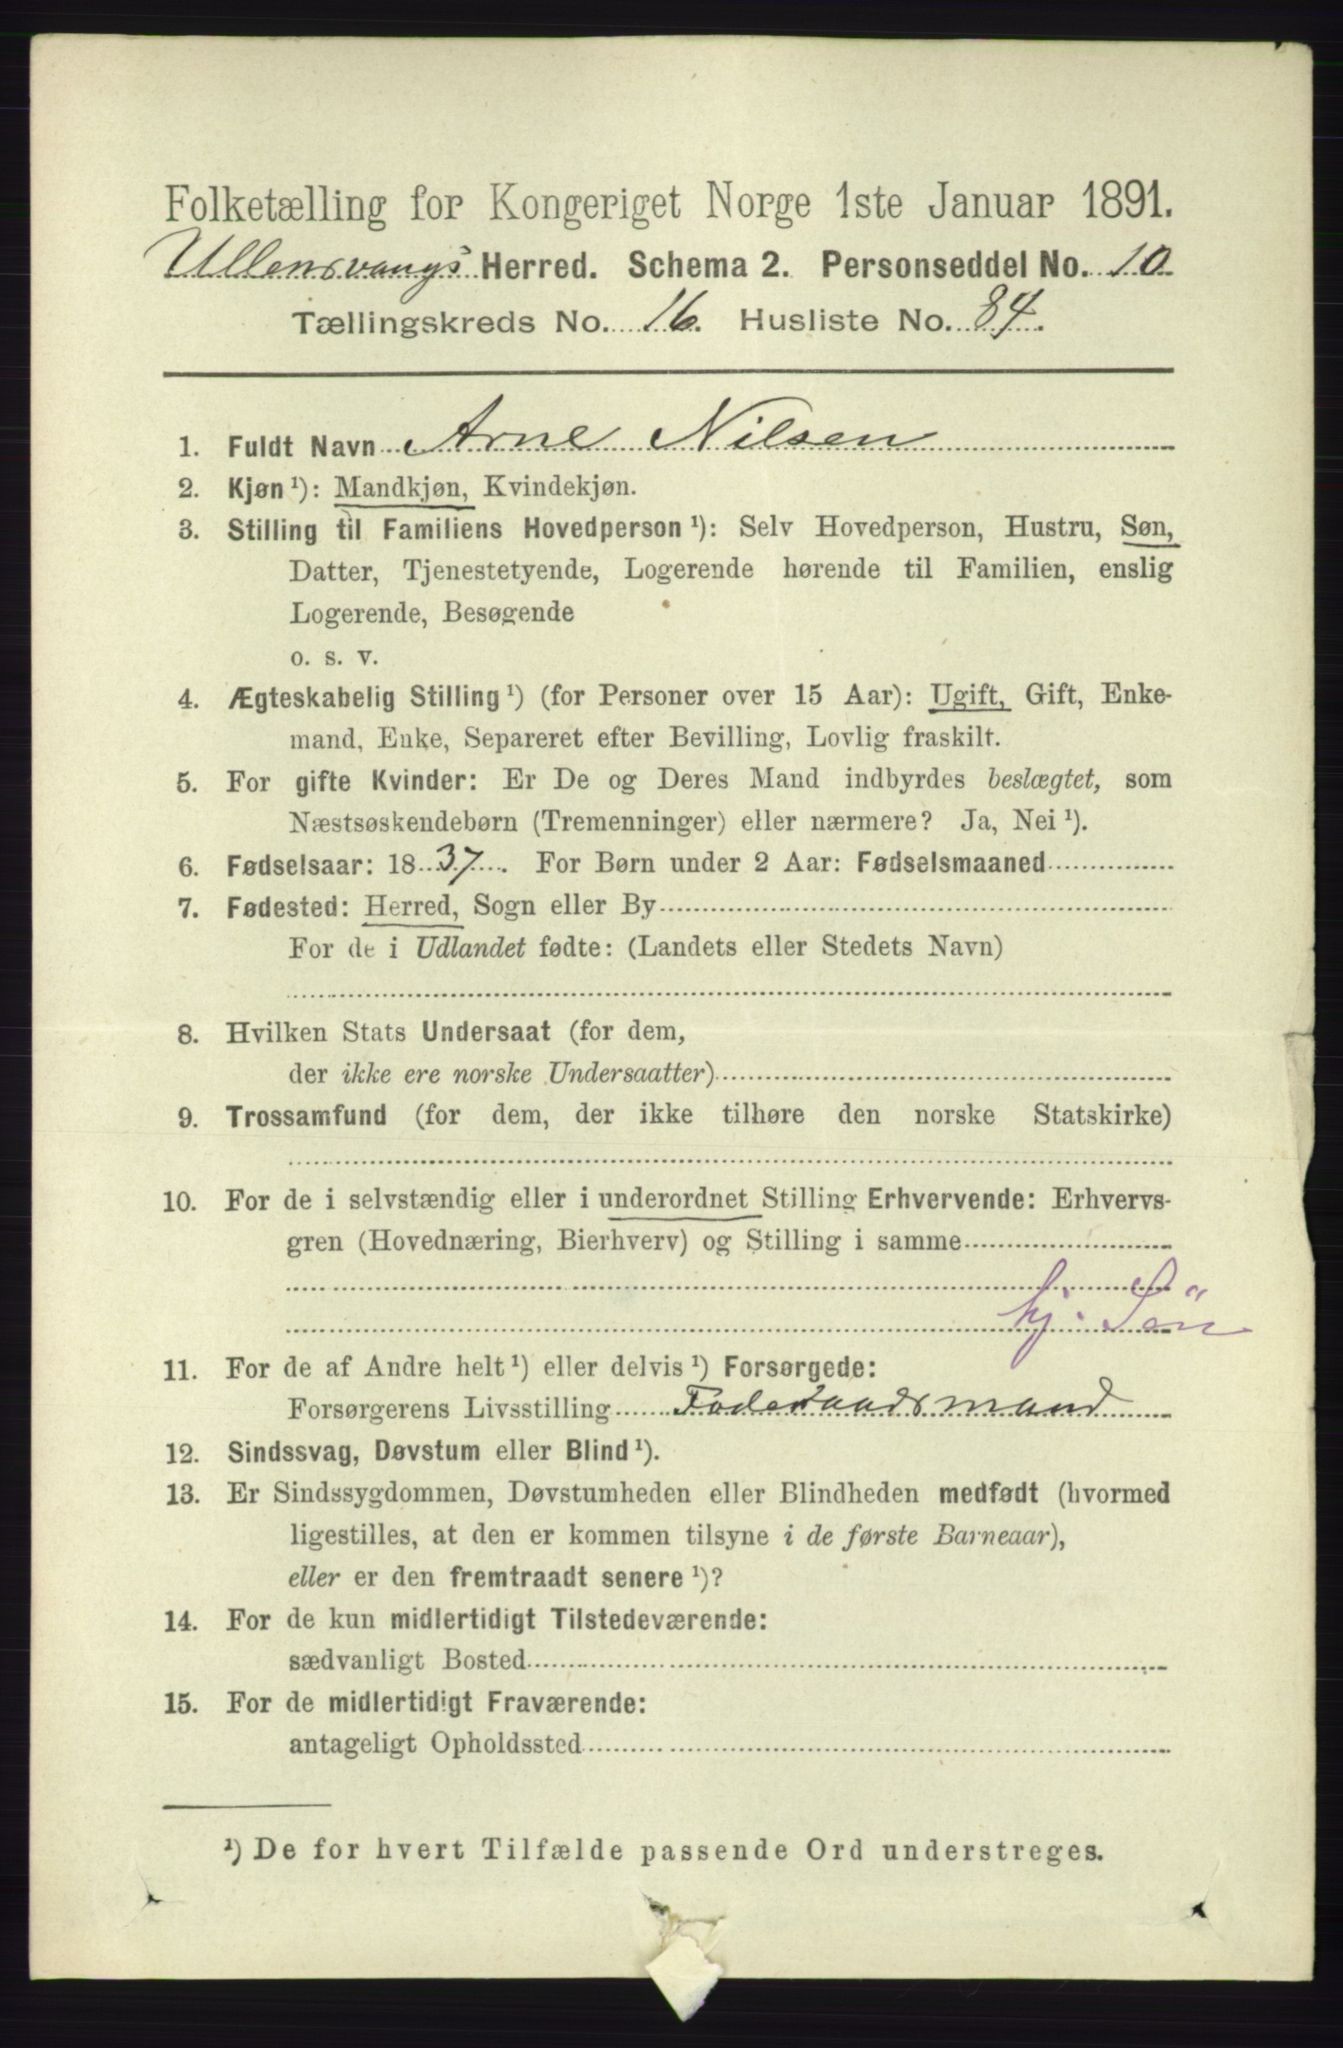 Folketælling for Kongeriget Norge 1ste Januar 1891.
Ullensvangs Herred. Schema 2. Personseddel No. 10
Tællingskreds No. 16. Husliste No. 84.
1. Fuldt Navn Arne Nilsen
2. Kjøn ¹): Mandkjøn, Kvindekjøn.
3. Stilling til Familiens Hovedperson ¹): Selv Hovedperson, Hustru, Søn,
Datter, Tjenestetyende, Logerende hørende til Familien, enslig
Logerende, Besøgende
o. s. v.
4. Ægteskabelig Stilling ¹) (for Personer over 15 Aar): Ugift, Gift, Enke-
mand, Enke, Separeret efter Bevilling, Lovlig fraskilt.
5. For gifte Kvinder: Er De og Deres Mand indbyrdes beslægtet, som
Næstsøskendebørn (Tremenninger) eller nærmere? Ja, Nei ¹).
6. Fødselsaar: 1837. For Børn under 2 Aar: Fødselsmaaned
7. Fødested: Herred, Sogn eller By
For de i Udlandet fødte: (Landets eller Stedets Navn)
8. Hvilken Stats Undersaat (for dem,
der ikke ere norske Undersaatter)
9. Trossamfund (for dem, der ikke tilhøre den norske Statskirke)
10. For de i selvstændig eller i underordnet Stilling Erhvervende: Erhvervs-
gren (Hovednæring, Bierhverv) og Stilling i samme
hj. Sön
11. For de af Andre helt ¹) eller delvis ¹) Forsørgede:
Forsørgerens Livsstilling Foderaadsmand
12. Sindssvag, Døvstum eller Blind ¹).
13. Er Sindssygdommen, Døvstumheden eller Blindheden medfødt (hvormed
ligestilles, at den er kommen tilsyne i de første Barneaar),
eller er den fremtraadt senere ¹)?
14. For de kun midlertidigt Tilstedeværende:
sædvanligt Bosted
15. For de midlertidigt Fraværende:
antageligt Opholdssted
¹) De for hvert Tilfælde passende Ord understreges.